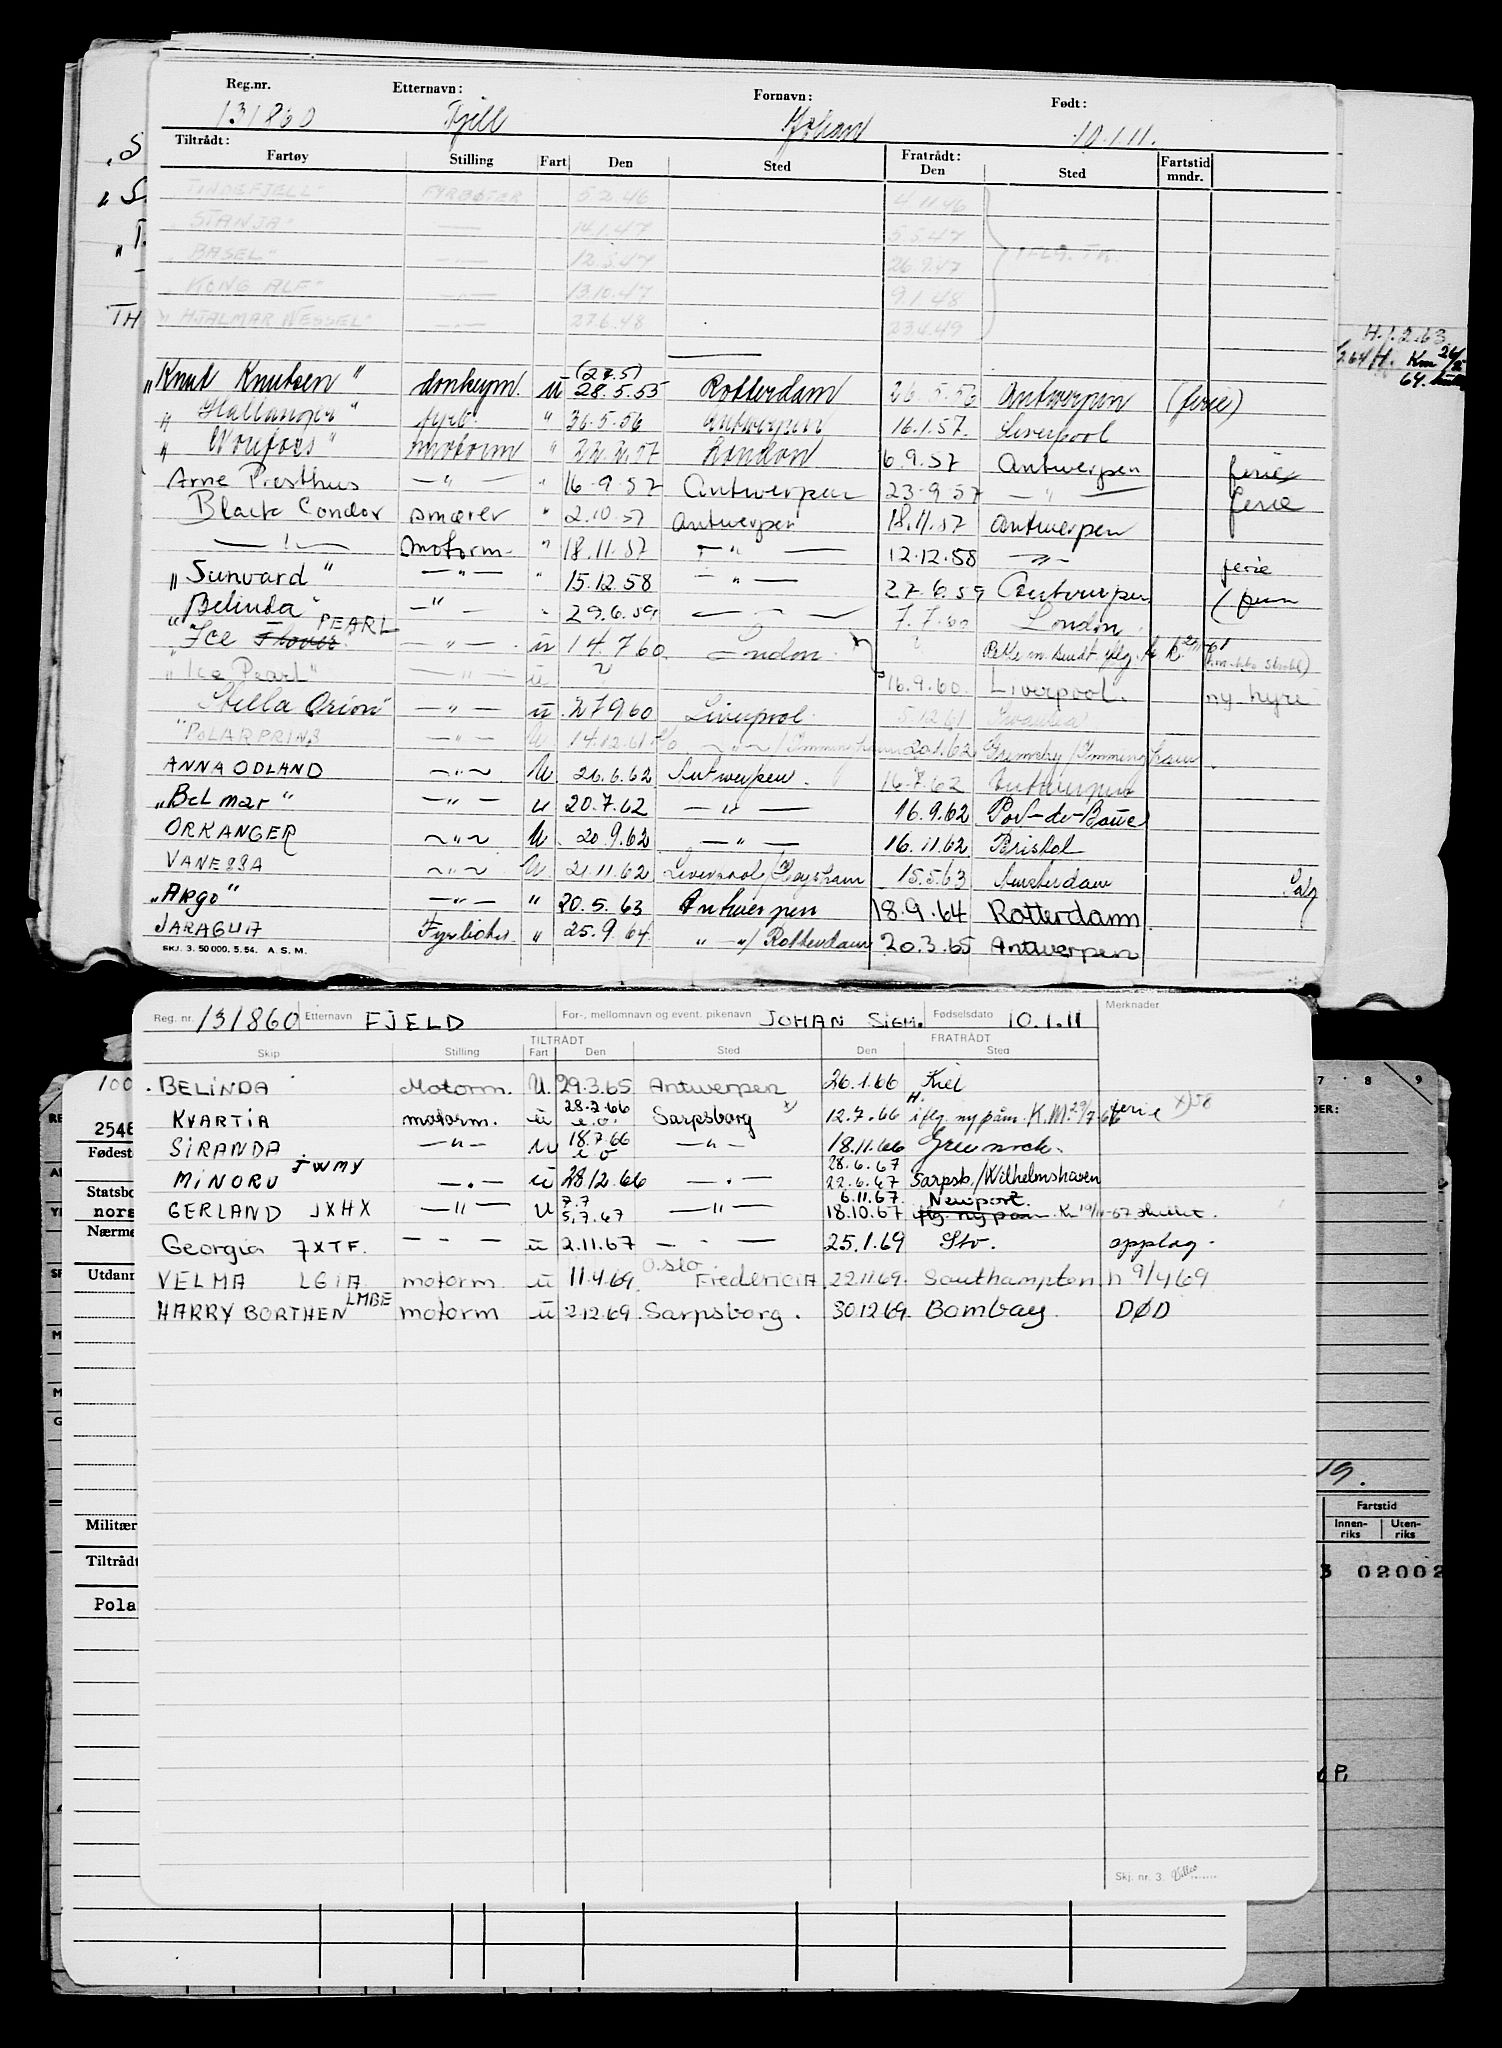 Reg.nr. Etternavn: Fornavn: Født:
131860 Johan 10.1.11.
Tiltrådt: Fratrådt:
Fartøy Stilling Fart Den Sted Den Sted Fartstid mndr.
"TINDEFJELL" FYRBØTER 5.2.46 4.11.46
"STANJA" —"— 14.1.47 5.5.47
"BASEL" —"— 12.5.47 26.9.47
"KONG ALF" —"— 13.10.47 9.1.48
"HJALMAR WESSEL" —"— 27.6.48 23.4.49
(27.5)
"Knut Knutsen" donkeym. ü 28.5.55 Rotterdam 26.5.53 Antwerpen (ferie)
fyrb. " 30.5.56 Antwerpen 16.1.57. Liverpool
motorm " 22.2.57 London 6.9.57 Antwerpen ferie
Arne Presthus —"— " 16.9.57 Antwerpen 23.9.57 —"— ferie
Black Condor smører " 2.10.57 Antwerpen 18.11.57 Antwerpen
—!— motorm. " 18.11.57 —"— 12.12.58 —"—
"Sunvard" —"— " 15.12.58 —"— 27.6.59 Antwerpen ferie
"Belinda" —"— " 29.6.59 —"— 7.7.60 London
PEARL
"Ice Flower —"— ü 14.7.60 London
"Ice Pearl" —"— ü " 16.9.60. Liverpool. ny hyre
Stella Orion" —"— ü 27.9.60 Liverpool 5.12.61
"POLARPRINS —"— U 14.12.61 —"—/Immingham 20.1.62 Grimsby/Immingham
ANNA ODLAND —"— U 26.6.62 Antwerpen. 16.7.62 Antwerpen
"Belmar" —"— u 20.7.62 —"— 16.9.62 Port-de-Bouc
ORKANGER —"— U 20.9.62 —"— 16.11.62 Bristol
VANESSA —"— U 21.11.62 Liverpool/Heysham 15.5.63 Amsterdam Salg
"Argo" —"— " 20.5.63 Antwerpen 18.9.64 Rotterdam
JARAGUA Fyrbøter " 25.9.64 "—"/Rotterdam 20.3.65 Antwerpen
SKJ. 3. 50 000. 5. 54. A. S. M.
H.1.2.63
TH
Reg. nr. 131860 Etternavn FJELD For-, mellomnavn og event. pikenavn JOHAN SIGM. Fødselsdato 10.1.11 Merknader
TILTRÅDT FRATRÅDT
Skip Stilling Fart Den Sted Den Sted
BELINDA Motorm. U. 29.3.65 Antwerpen 26.1.66 Kiel
KVARTIA motorm. ü 28.2.66 Sarpsborg x) 12.7.66 iflg. ny påm. K.M. 29/7-66 ferie x) 58
SIRANDA —"— U 18.7.66 —"— 18.11.66 Greenock.
28.6.67
MINORU JWMY —"— ü 28.12.66 —"— 22.6.67 Sarpsb./Wilhelmshaven
7.7 6.11.67. Newport.
GERLAND JXHX —"— U 5.7.67 —"— 18.10.67 iflg. ny påm.
Georgia JXTF. — - — ü 2.11.67 — - — 25.1.69 Stv. opplag.
VELMA LGIA motorm. ü 11.4.69. Oslo Fredericia 22.11.69. Southampton h 9/4 69
HARRY BORTHEN LMBE motorm ü 2.12.69. Sarpsborg. 30.12.69. Bombay. DØD
Skj. nr. 3.
100
2548
Fødeste
Statsbo
nors
Nærme
Utdann
Militær
Tiltrådt
Pola
7 8 9
DER:
19.
Fartstid
Innen-riks Uten-riks
3 02002